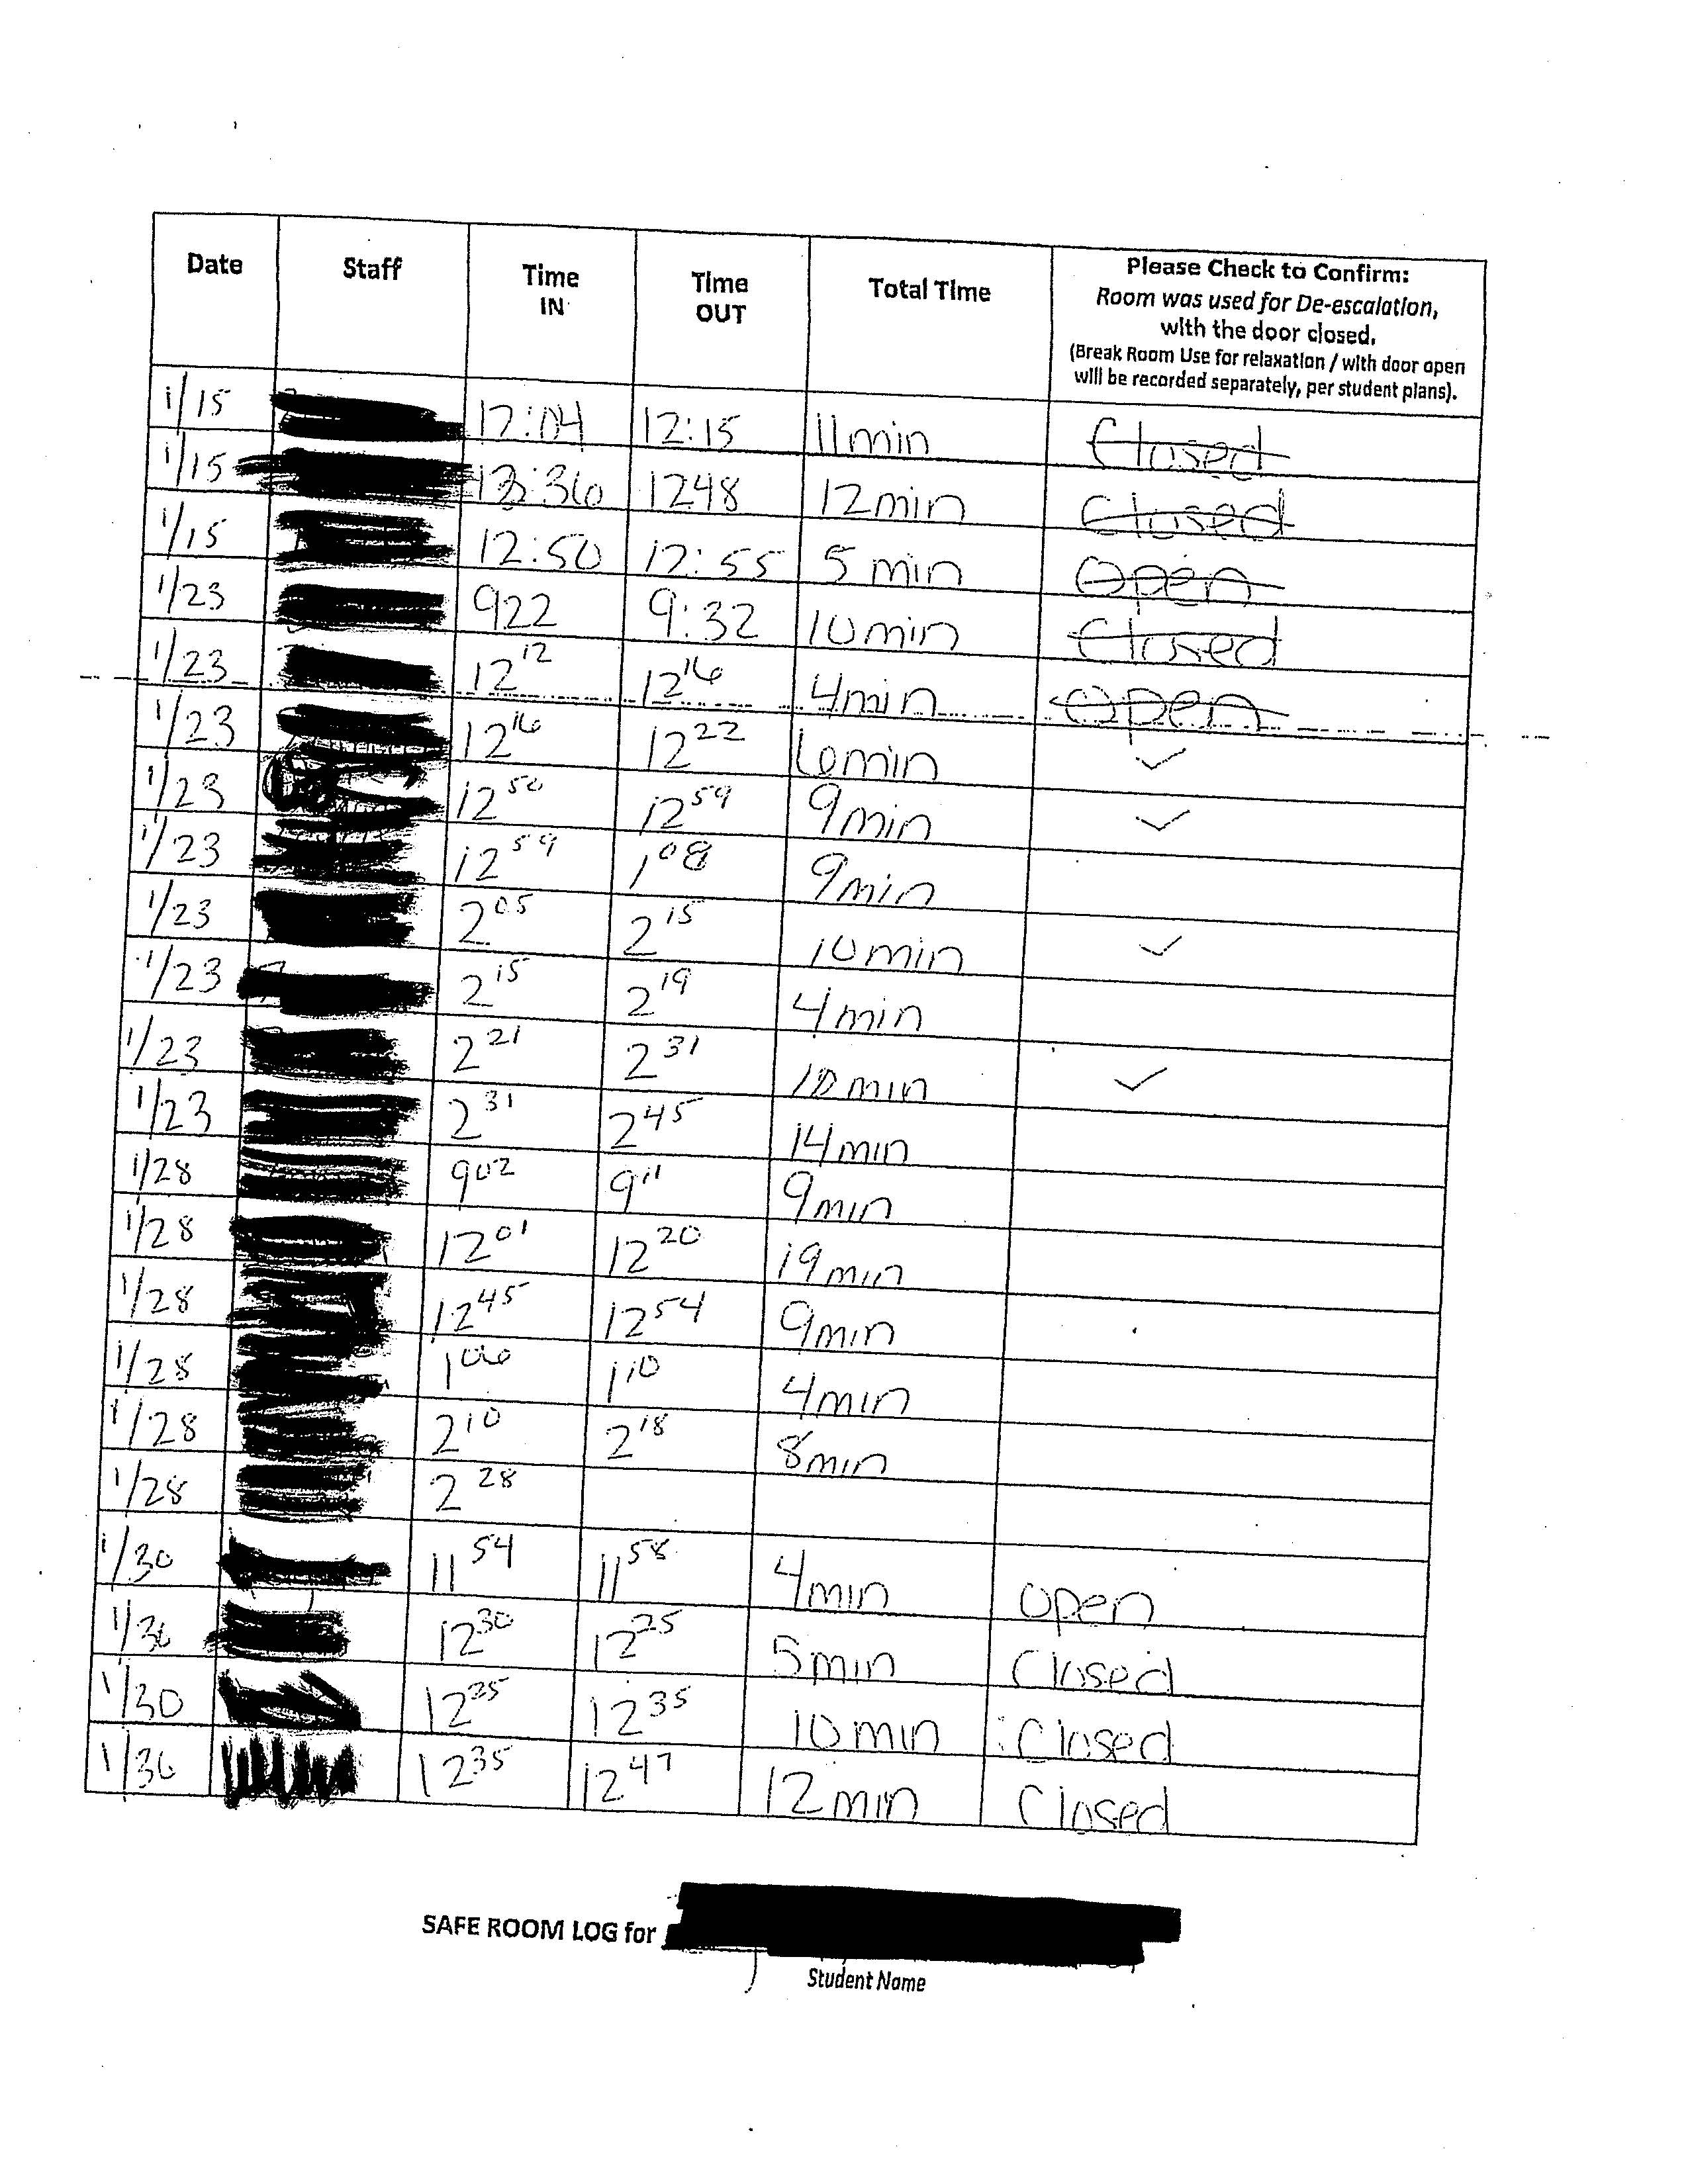 Date Staff Time IN Time OUT Total Time Please Check to Confirm:
Room was used for De-escalation,
with the door closed.
(Break Room Use for relaxation / with door open
will be recorded separately, per student plans).
1/15 12:04 12:15 11min Closed
1/15 1248 12min Closed
1/15 12:50 12:55 5 min Open
1/23 922 9:32 10min Closed
1/23 12 12 12 16 4min Open
1/23 12 16 12 22 6min ✓
1/23 12 50 12 59 9min ✓
1/23 12 59 1 08 9min
1/23 2 05 2 15 10min ✓
1/23 2 15 2 19 4min
1/23 2 21 2 31 10min ✓
1/23 2 31 2 45 14min
1/28 9 02 9 11 9min
1/28 12 01 12 20 19min
1/28 12 45 12 54 9min
1/28 1 06 1 10 4min
1/28 2 10 2 18 8min
1/28 2 28
1/30 11 54 11 58 4min open
1/30 12 25 5min Closed
1/30 12 35 10min Closed
1/30 12 35 12 47 12min Closed
SAFE ROOM LOG for
Student Name